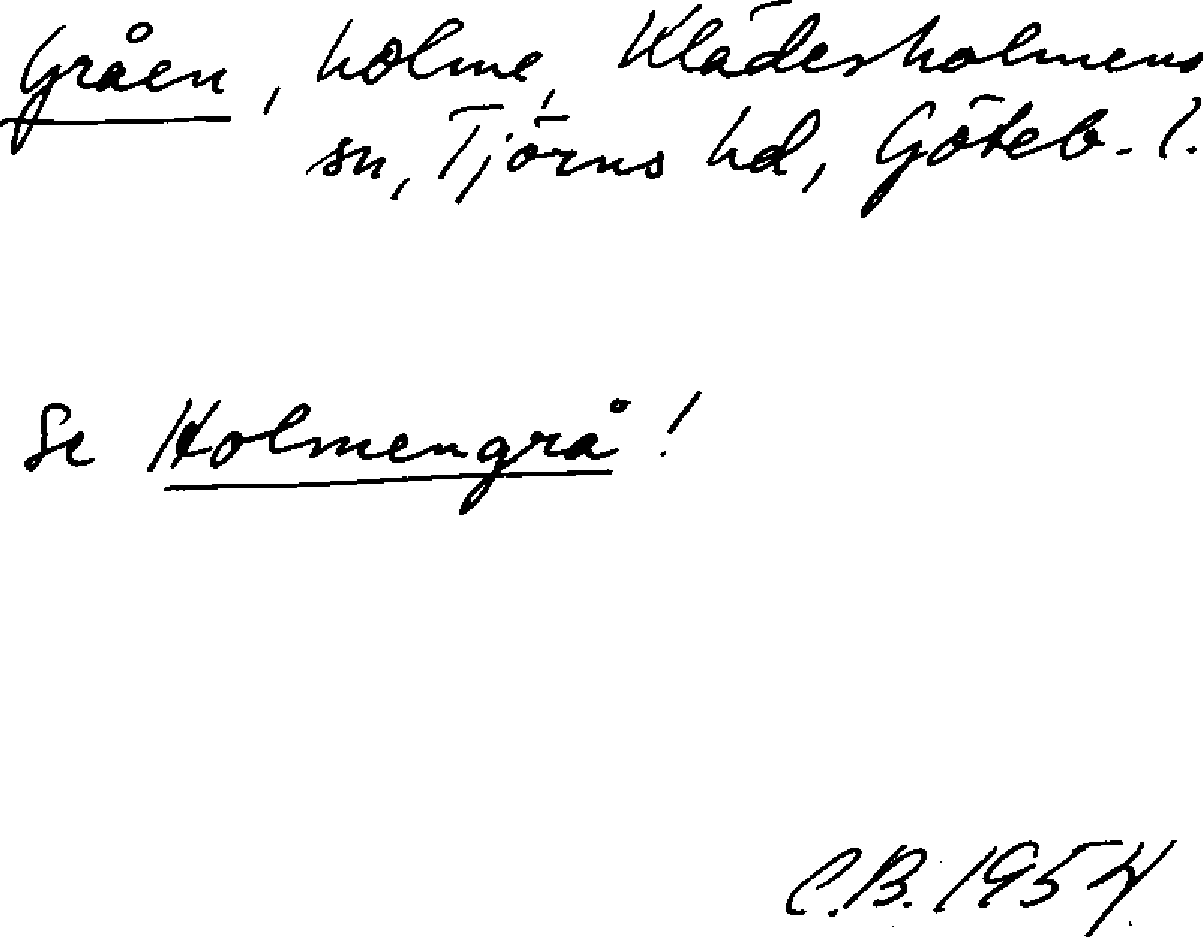 Gråen, holme, Klädesholmens
sn, Tjörns hd, Göteb. l.
Se Holmengrå!
C.B. 1954.